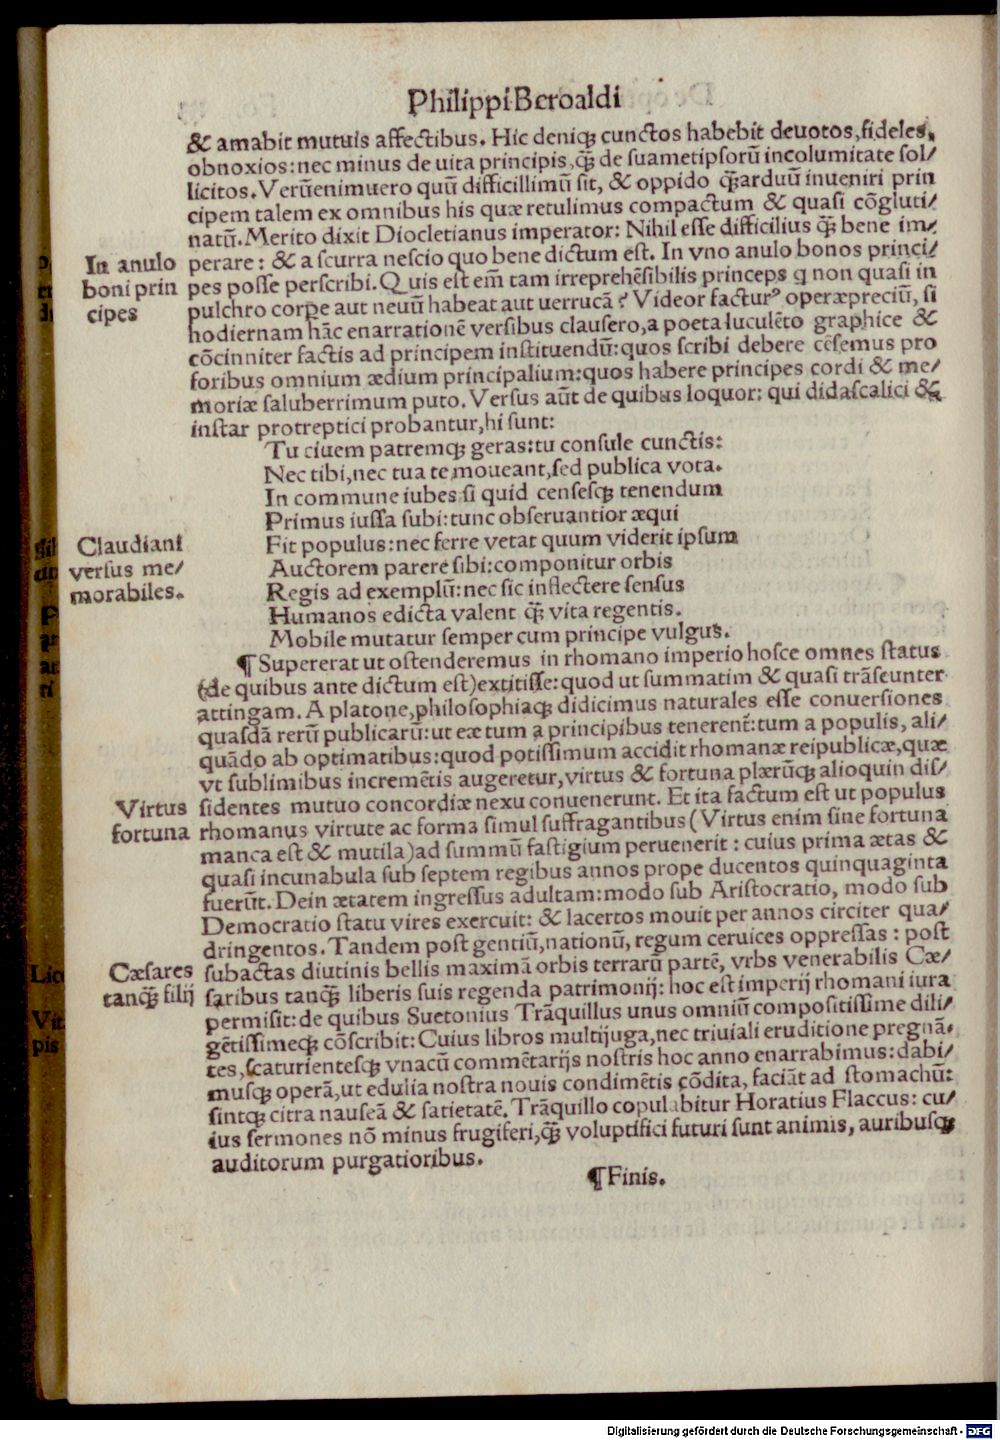 Philippi Beroaldi
& amabit mutuis affectibus. Hic deniqꝫ cunctos habebit deuotos, fideles,
obnoxios: nec minus de uita principis, qꝫ̄ de suametipsorū incolumitate sol/
licitos. Verūenimuero quū difficillimū sit, & oppido qꝫ̄arduū inueniri prin
cipem talem ex omnibus his quæ retulimus compactum & quasi cōgluti/
natū. Merito dixit Diocletianus imperator: Nihil esse difficilius qꝫ̄ bene im/
In anulo
boni prin
cipes
perare: & a scurra nescio quo bene dictum est. In vno anulo bonos princi/
pes posse perscribi. Quis est em̄ tam irreprehēsibilis princeps q non quasi in
pulchro corpe aut neuū habeat aut uerrucā? Videor facturꝰ operæpreciū, si
hodiernam hāc enarrationē versibus clausero, a poeta luculēto graphice &
cōcinniter factis ad principem instituendū: quos scribi debere cēsemus pro
foribus omnium ædium principalium: quos habere principes cordi & me/
moriæ saluberrimum puto. Versus aūt de quibus loquor: qui didascalici &
instar protreptici probantur, hi sunt:
Tu ciuem patremqꝫ geras: tu consule cunctis:
Nec tibi, nec tua te moueant, sed publica vota.
In commune iubes si quid censesqꝫ tenendum
Primus iussa subi: tunc obseruantior æqui
Claudiani
versus me/
morabiles.
Fit populus: nec ferre vetat quum viderit ipsum
Auctorem parere sibi: componitur orbis
Regis ad exemplū: nec sic inflectere sensus
Humanos edicta valent qꝫ̄ vita regentis.
Mobile mutatur semper cum principe vulgus.
¶ Supererat ut ostenderemus in rhomano imperio hosce omnes status
(de quibus ante dictum est) extitisse: quod ut summatim & quasi trāseunter
attingam. A platone, philosophiaqꝫ didicimus naturales esse conuersiones
quasdā rerū publicarū: ut eæ tum a principibus tenerent̄: tum a populis, ali/
quādo ab optimatibus: quod potissimum accidit rhomanæ reipublicæ, quæ
vt sublimibus incremētis augeretur, virtus & fortuna plærūqꝫ alioquin dis/
Virtus
fortuna
sidentes mutuo concordiæ nexu conuenerunt. Et ita factum est ut populus
rhomanus virtute ac forma simul suffragantibus (Virtus enim sine fortuna
manca est & mutila) ad summū fastigium peruenerit: cuius prima ætas &
quasi incunabula sub septem regibus annos prope ducentos quinquaginta
fuerūt. Dein ætatem ingressus adultam: modo sub Aristocratio, modo sub
Democratio statu vires exercuit: & lacertos mouit per annos circiter qua/
dringentos. Tandem post gentiū, nationū, regum ceruices oppressas: post
Cæsares
tanqꝫ̄ filij
subactas diutinis bellis maximā orbis terrarū partē, vrbs venerabilis Cæ/
saribus tanqꝫ̄ liberis suis regenda patrimonij: hoc est imperij rhomani iura
permisit: de quibus Suetonius Trāquillus unus omniū compositissime dili/
gētissimeqꝫ cōscribit: Cuius libros multijuga, nec triuiali eruditione pregnā/
tes, scaturientesqꝫ vnacū commētarijs nostris hoc anno enarrabimus: dabi/
musqꝫ operā, ut edulia nostra nouis condimētis cōdita, faciāt ad stomachū:
sintqꝫ citra nauseā & satietatē. Trāquillo copulabitur Horatius Flaccus: cu/
ius sermones nō minus frugiferi, qꝫ̄ voluptifici futuri sunt animis, auribusqꝫ
auditorum purgatioribus.
¶ Finis.
Digitalisierung gefördert durch die Deutsche Forschungsgemeinschaft - DFG